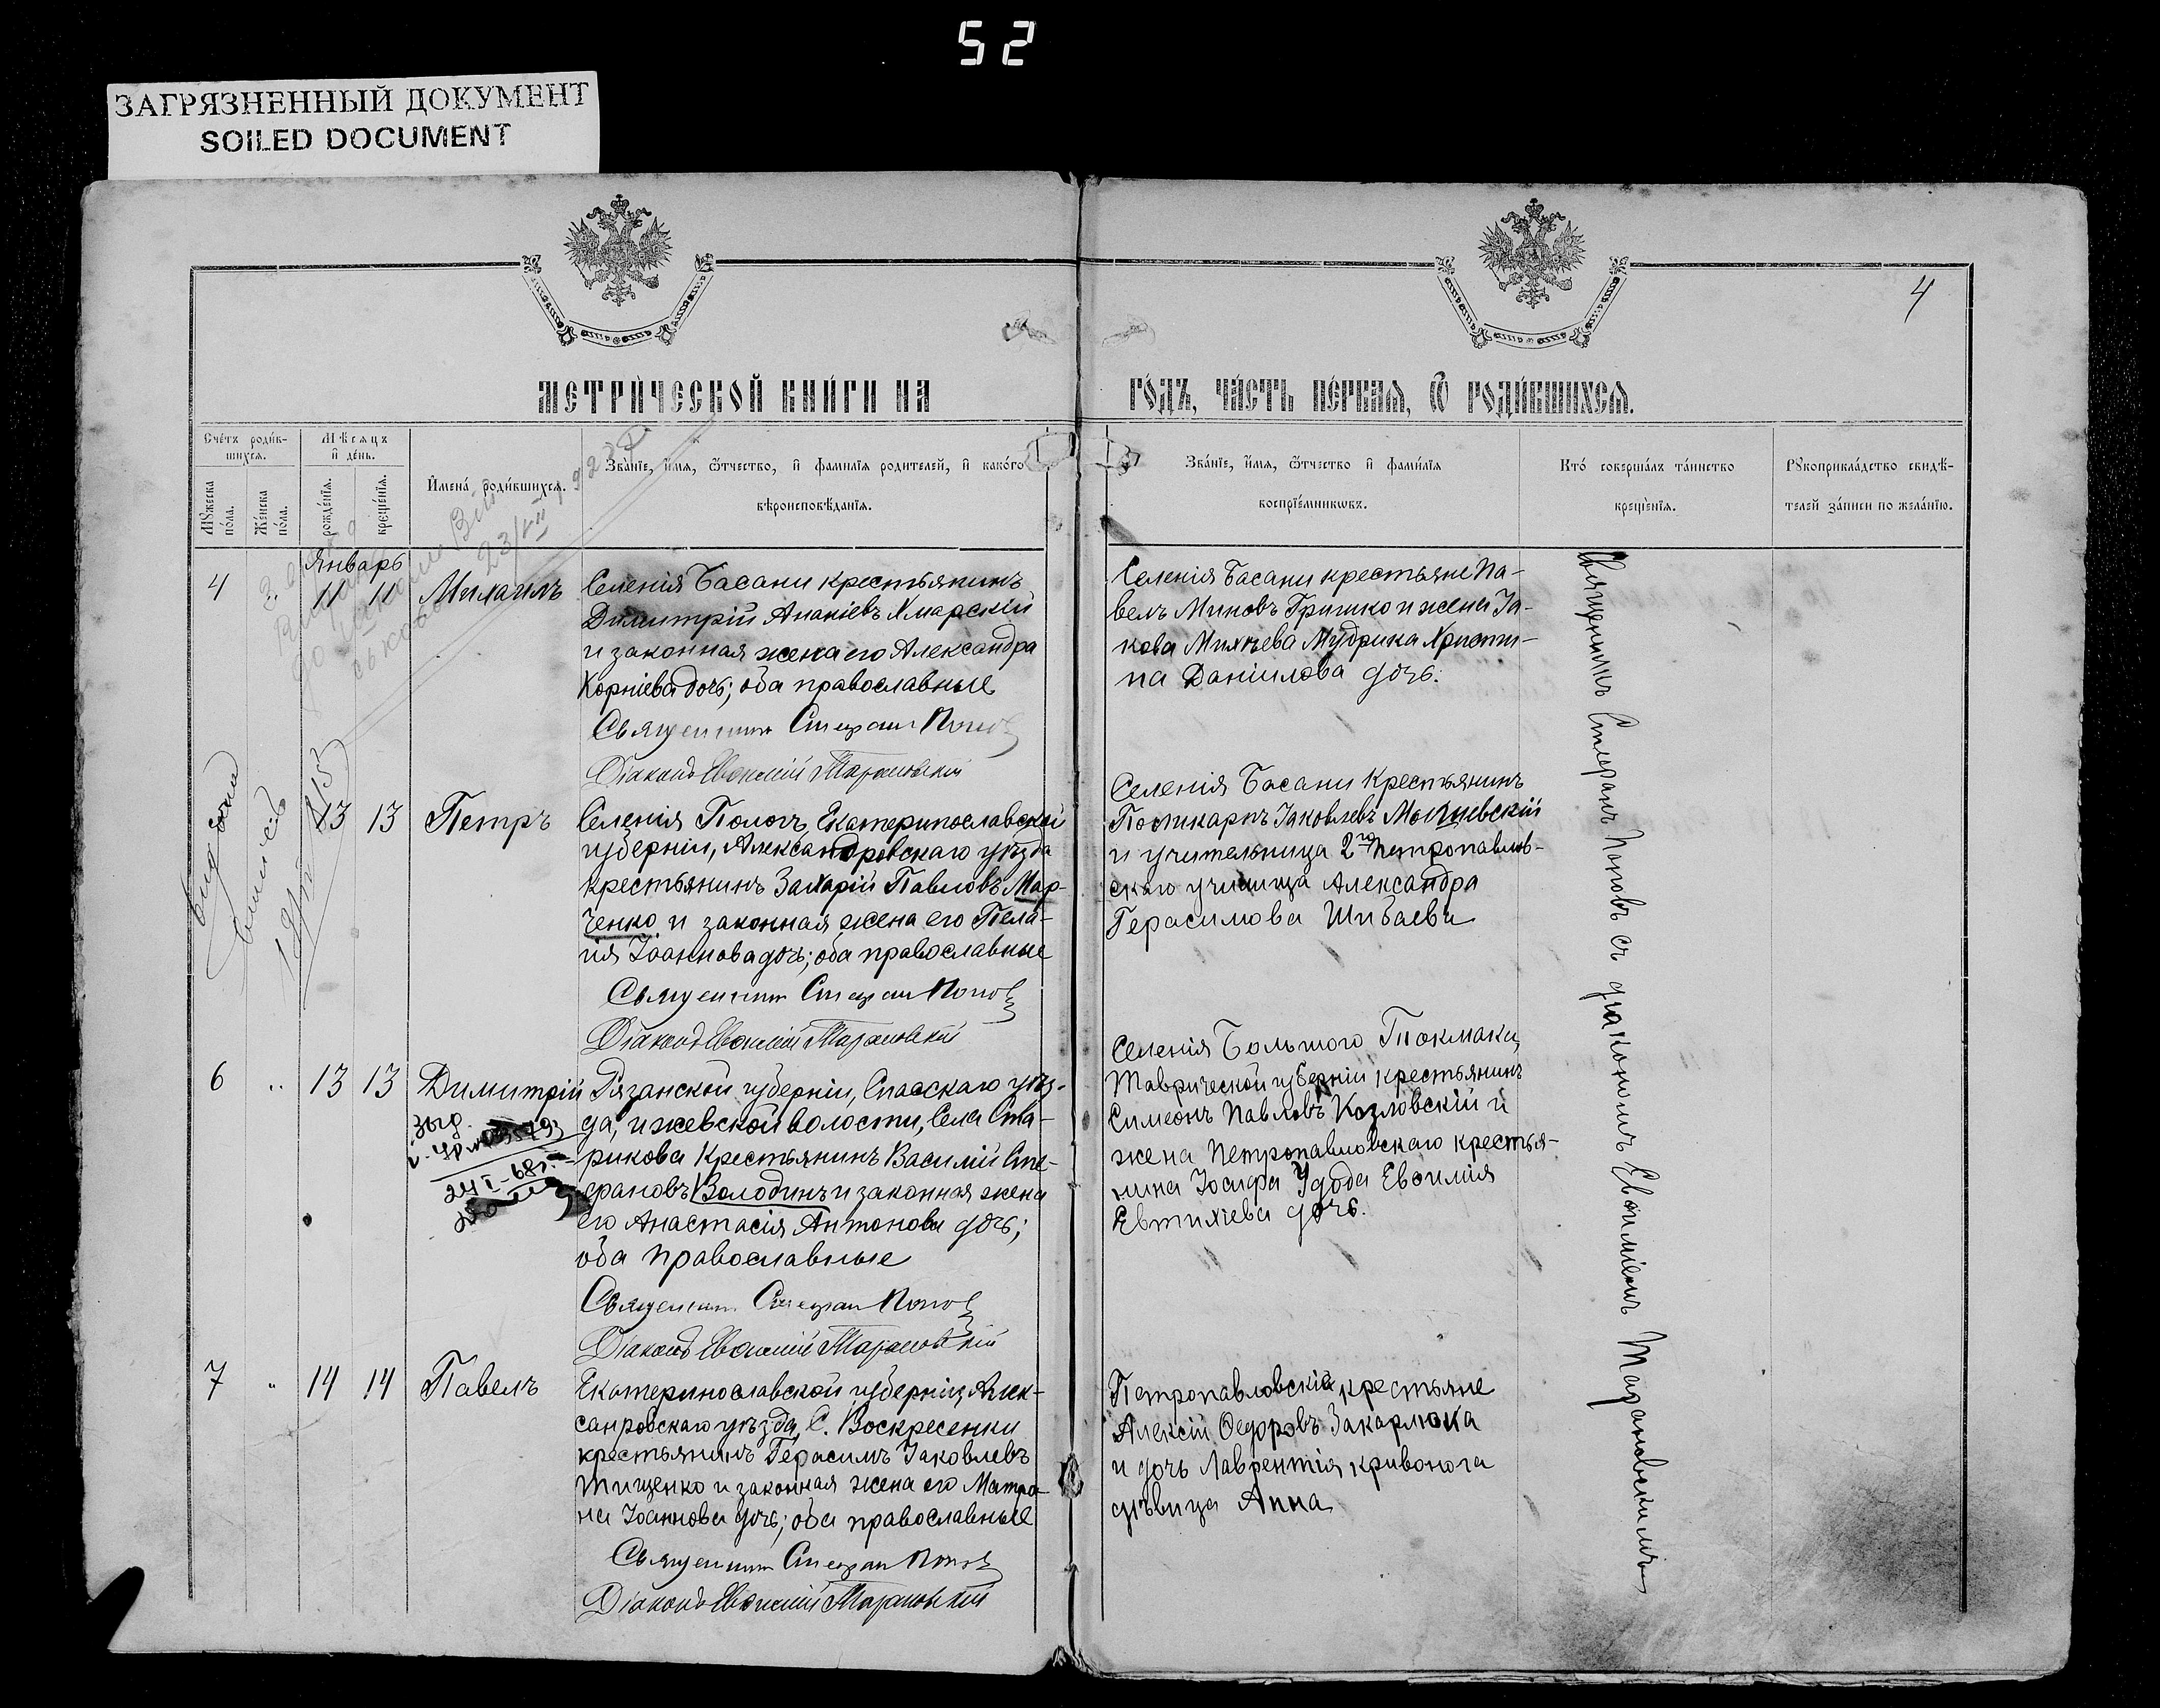 52
ЗАГРЯЗНЕННЫЙ ДОКУМЕНТ
SOILED DOCUMENT
4
МЕТРИ́ЧЕСКОЙ КНИ́ГИ НА
ГО́ДЪ, ЧА́СТЬ ПЕ́РВАЯ, Ѿ РОДИ́ВШИХСЯ.
Сче́тъ роди́в-
шихся.
Мѣ́сяцъ
и҆ де́нь.
Мꙋ́жеска
по́ла.
Же́нска
по́ла.
рожде́нїя.
креще́нїя.
И҆мена̀ роди́вшихся.
Зва́нїе, и҆́мя, ѻ҆́тчество, и҆ фами́лїя роди́телей, и҆ како́гѡ
вѣроисповѣ́данїя.
Зва́нїе, и҆́мя, ѻ҆́тчество и҆ фами́лїя
воспрїе́мникѡвъ.
Кто́ соверша́лъ та́инство
креще́нїя.
Рꙋкоприкла́дство свидѣ́-
телей за́писи по жела́нїю.
Январь
4 .. 11 11 Михаилъ
Селенія Басани крестьянинъ
Димитрій Ананіевъ Хмарскій
и законная жена его Александра
Корніева дочь; оба православные
Священникъ Стефан Попов
Діаконъ Евѳимій Тарановскій
Селенія Басани крестьяне Па-
велъ Миновъ Гришко и жена Іа-
кова Михѣева Мудрика Христи-
на Даніилова дочь.
13 13 Петръ
Селенія Пологъ, Екатеринославской
губерніи, Александровскаго уѣзда
крестьянинъ Захарій Павловъ Мар-
ченко и законная жена его Пела-
гія Іоаннова дочь; оба православные
Священникъ Стефан Попов
Діаконъ Евѳимій Тарановскій
Селенія Басани крестьянинъ
Поликарпъ Іаковлевъ
и учительница 2го Петропавлов-
скаго училища Александра
Герасимова Шибаева
6 .. 13 13 Димитрій
Рязанской губерніи, Спасскаго уѣз-
да, Ижевской волости, Села Ста-
рикова Крестьянинъ Василій Сте-
фановъ Володинъ и законная жена
его Анастасія Антонова дочь;
оба православные
Священникъ Стефан Попов
Діаконъ Евѳимій Тарановскій
Селенія Большого Токмака,
Таврической губерніи крестьянинъ
Симеонъ Павловъ Козловскій и
жена Петропавловскаго крестья-
нина Іосифа Удода Евѳимія
Евтихіева дочь.
7 .. 14 14 Павелъ
Екатеринославской губерніи, Алек-
санровскаго уѣзда, С. Воскресенки
крестьянинъ Герасимъ Іаковлевъ
Тищенко и законная жена его Матро-
на Іоаннова дочь; оба православные
Священникъ Стефан Попов
Діаконъ Евѳимій Тарановскій
Петропавловскіе крестьяне
Алексій Ѳедоровъ Закарлюка
и дочь Лаврентія Кривонога
дѣвица Анна
Священникъ Стефанъ Поповъ съ діакономъ Евѳиміемъ Тарановскимъ